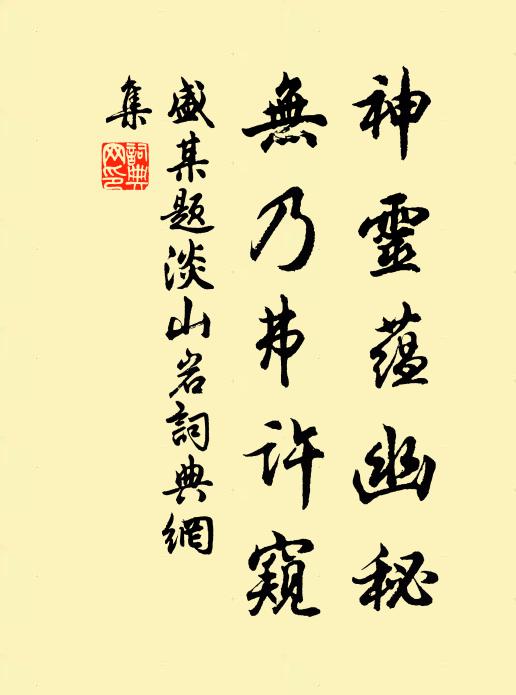 神靈蘊幽秘
無乃弗許窺
盛某題淡山岩詞典網
集
詞典網印